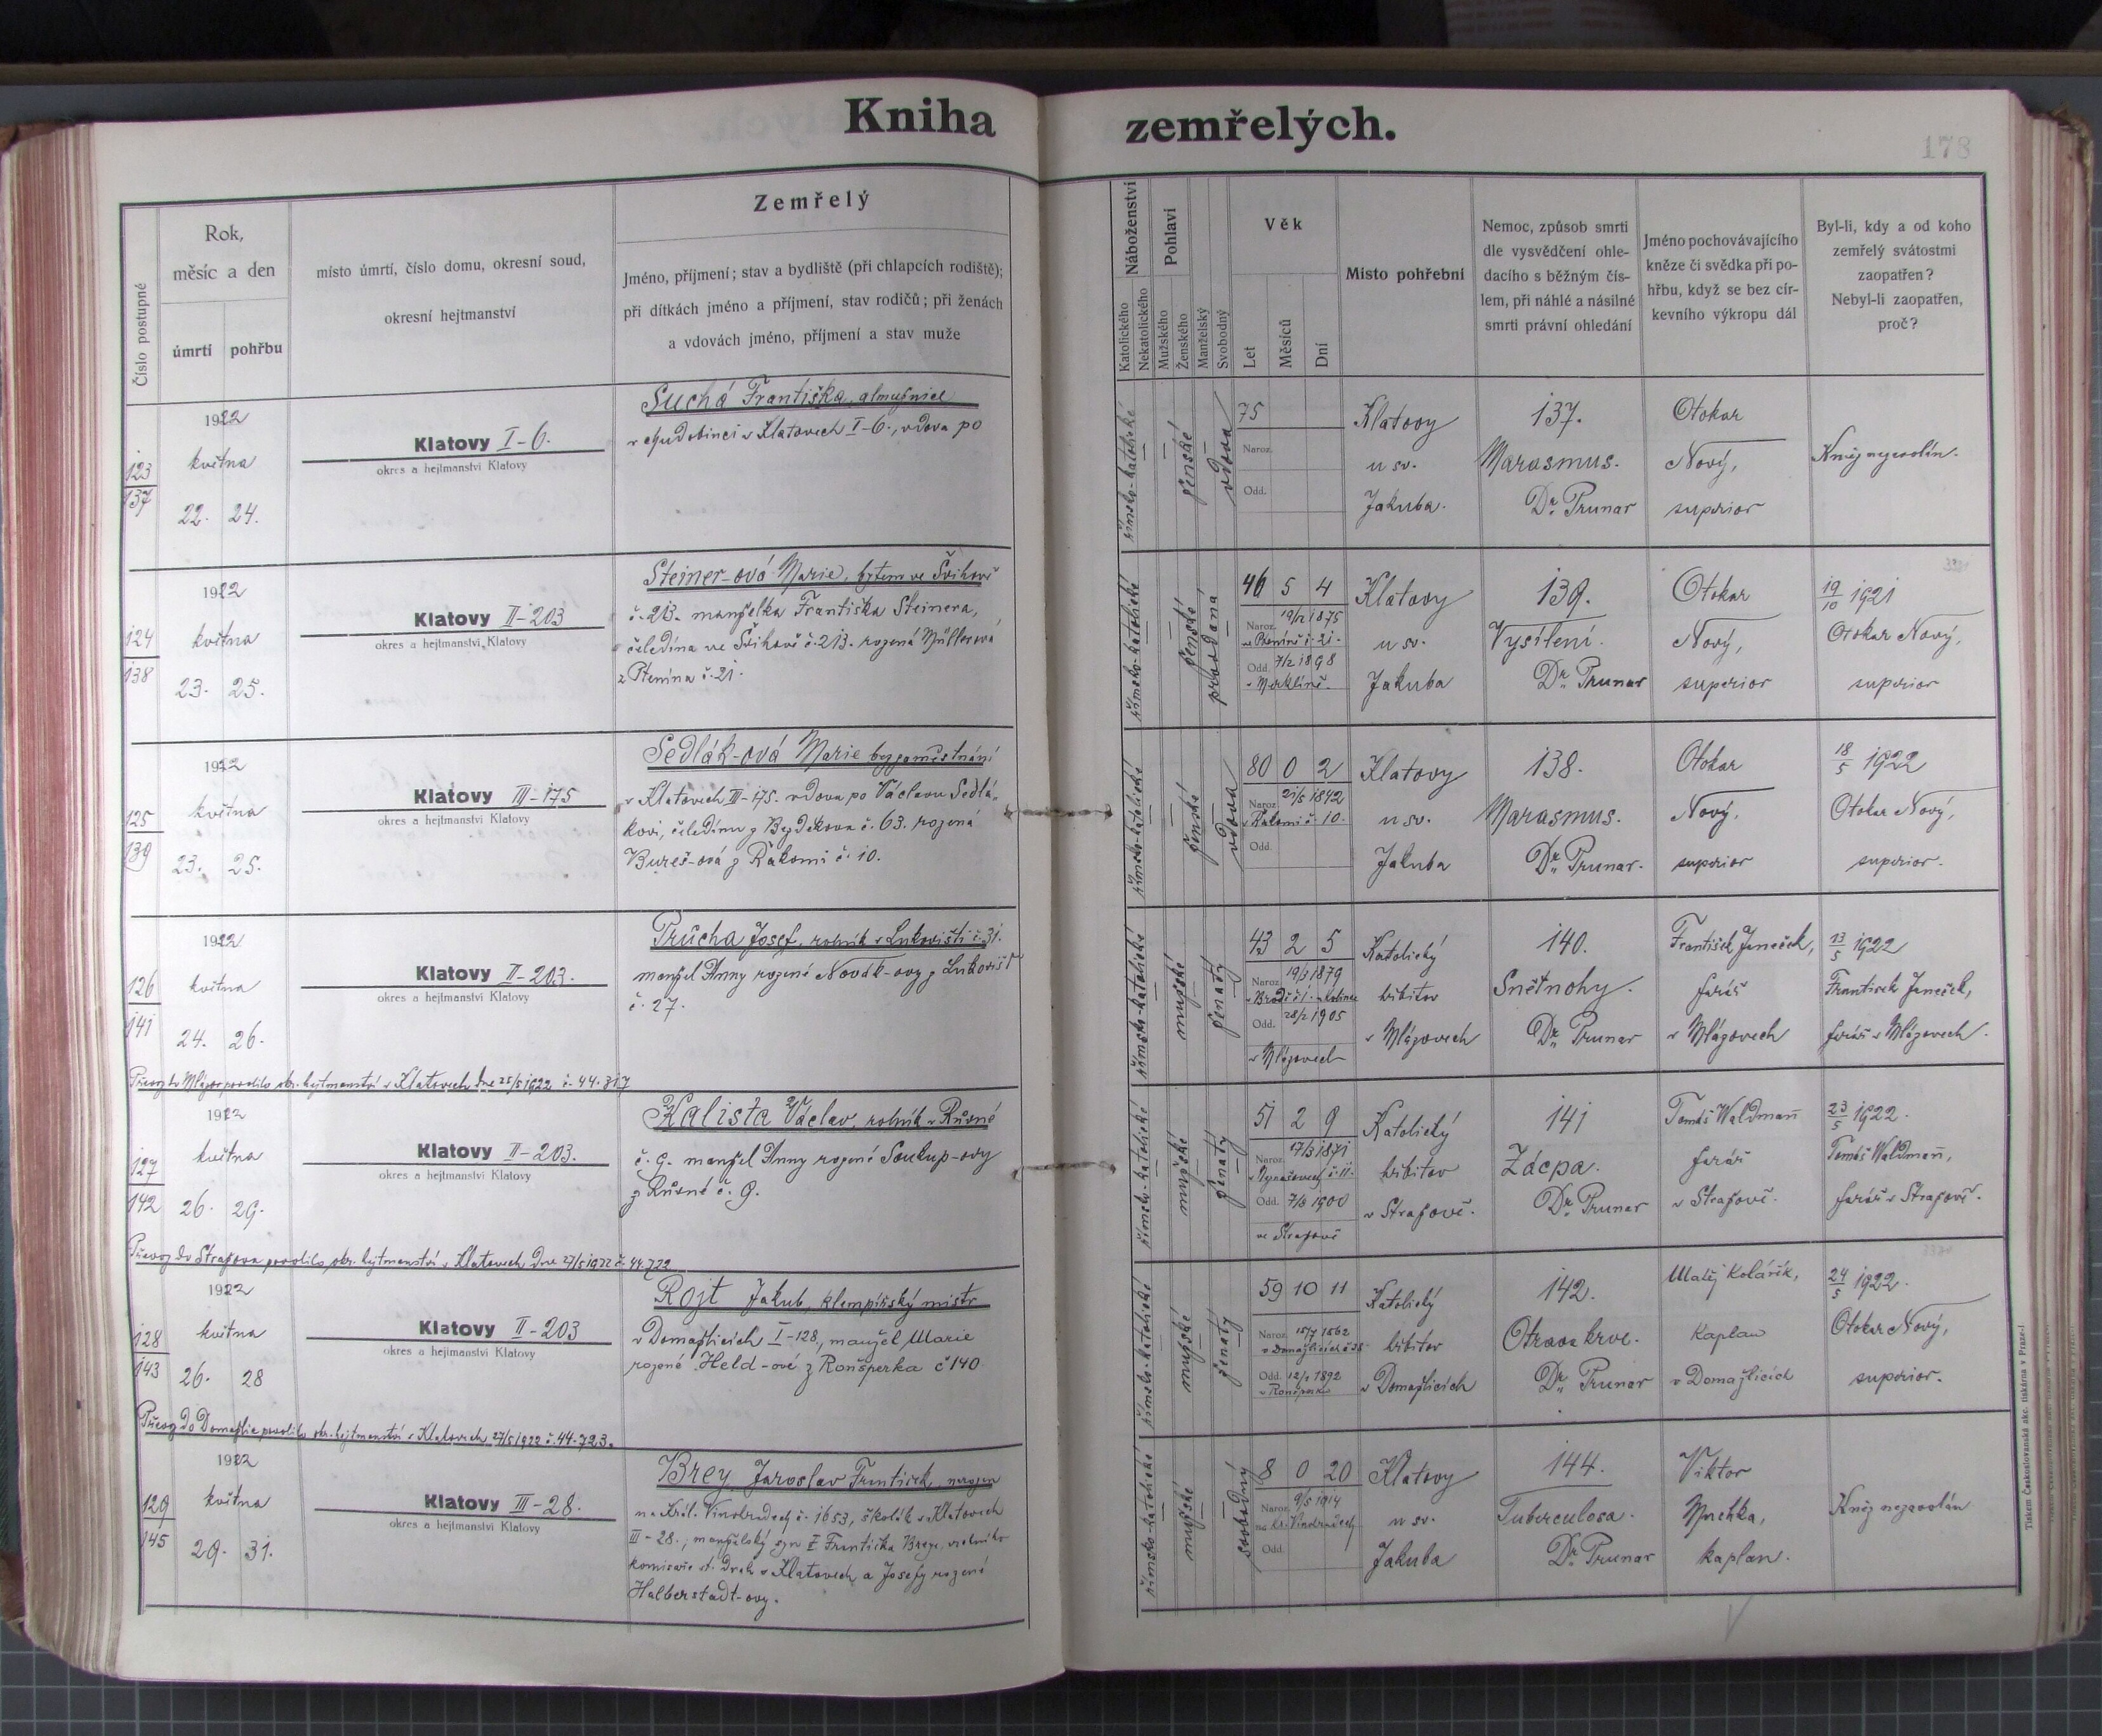 Kniha zemřelých.
178
Číslo postupné
Rok,
měsíc a den
úmrtí
pohřbu
místo úmrtí, číslo domu, okresní soud,
okresní hejtmanství
Zemřelý
Jméno, příjmení; stav a bydliště (při chlapcích rodiště);
při dítkách jméno a příjmení, stav rodičů; při ženách
a vdovách jméno, příjmení a stav muže
Náboženství
Katolického
Nekatolického
Pohlaví
Mužského
Ženského
Manželský
Svobodný
Věk
Let
Měsíců
Dní
Místo pohřební
Nemoc, způsob smrti
dle vysvědčení ohle-
dacího s běžným čís-
lem, při náhlé a násilné
smrti právní ohledání
Jméno pochovávajícího
kněze či svědka při po-
hřbu, když se bez cír-
kevního výkropu dál
Byl-li, kdy a od koho
zemřelý svátostmi
zaopatřen?
Nebyl-li zaopatřen,
proč?
123
137
1922
května
22. 24.
Klatovy I-6.
okres a hejtmanství Klatovy
Suchá Františka, almužnice
v chudobinci v Klatovech I-6., vdova po
římsko-katolické
ženské
vdova
75
Naroz.
Odd.
Klatovy
u sv.
Jakuba.
137.
Marasmus.
Dr. Prunar
Otokar
Nový,
superior
Kněz nezavolán.
124
138
1922
května
23. 25.
Klatovy II-203
okres a hejtmanství Klatovy
Steiner-ová Marie, bytem ve Švihově
č. 213. manželka Františka Steinera,
čeledína ve Švihově č. 213. rozená Müllerová
z Ptenína č. 21.
římsko-katolické
ženské
provdaná
46 5 4
Naroz. 19/12 1875
v Pteníně č. 21.
Odd. 7/2 1898
v Merklíně.
Klatovy
u sv.
Jakuba
139.
Vysílení.
Dr. Prunar
Otokar
Nový,
superior
19/10 1921
Otokar Nový,
superior
125
139
1922
května
23. 25.
Klatovy III-175
okres a hejtmanství Klatovy
Sedlák-ová Marie bez zaměstnání
v Klatovech III-175. vdova po Václavu Sedlá-
kovi, čeledínu z Bezděkova č. 63. rozená
Bureš-ová z Rakomi č. 10.
římsko-katolické
ženské
vdova
80 0 2
Naroz. 21/5 1842
v Rakomi č. 10.
Odd.
Klatovy
u sv.
Jakuba
138.
Marasmus.
Dr. Prunar.
Otokar
Nový,
superior
18/5 1922
Otokar Nový,
superior.
126
141
1922
května
24. 26.
Klatovy II-203.
okres a hejtmanství Klatovy
Průcha Josef, rolník v Lukovišti č. 31.
manžel Anny rozené Novák-ovy z Lukovišť
č. 27.
římsko-katolické
mužské
ženatý
43 2 5
Naroz. 19/3 1879
Odd. 28/2 1905
v Mlázovech
Katolický
hřbitov
v Mlázovech
140.
Snětnohy.
Dr. Prunar
František Janeček,
farář
v Mlázovech
23/5 1922
František Janeček,
farář v Mlázovech.
Převoz do Mlázov povolilo okr. hejtmanství v Klatovech dne 25/5 1922 č. 44.317
127
142
1922
května
26. 29.
Klatovy II-203.
okres a hejtmanství Klatovy
Kalista Václav, rolník v Růžné
č. 9. manžel Anny rozené Soukup-ovy
z Růžné č. 9.
římsko-katolické
mužské
ženatý
51 2 9
Naroz. 17/3 1871
Odd. 7/8 1900
ve Stražově
Katolický
hřbitov
v Stražově.
141
Zácpa.
Dr. Prunar
Tomáš Waldmann
farář
v Stražově.
23/5 1922.
Tomáš Waldmann,
farář v Stražově.
Převoz do Stražova povolilo okr. hejtmanství v Klatovech dne 27/5 1922 č. 44.722
128
143
1922
května
26. 28
Klatovy II-203
okres a hejtmanství Klatovy
Rojt Jakub, klempířský mistr
v Domažlicích I-128, manžel Marie
rozené Held-ové z Ronšperka č 140
římsko-katolické
mužské
ženatý
59 10 11
Naroz. 15/7 1862
v Domažlicích
Odd. 12/1 1892
v Ronšperku
Katolický
hřbitov
v Domažlicích
142.
Otrava krve.
Dr. Prunar
Matěj Kolářík,
kaplan
v Domažlicích
24/5 1922.
Otokar Nový,
superior.
Převoz do Domažlic povolilo okr. hejtmanství v Klatovech 27/5 1922 č. 44.723.
129
145
1922
května
29. 31.
Klatovy III-28.
okres a hejtmanství Klatovy
Brey Jaroslav František, narozen
na Král. Vinohradech č. 1653, školák v Klatovech
III-28., manželský syn Františka Breye, vrchního
komisaře st. drah v Klatovech a Josefy rozené
Halberstadt-ovy.
římsko-katolické
mužské
svobodný
8 0 20
Naroz. 9/5 1914
na Kr. Vinohradech
Odd.
Klatovy
u sv.
Jakuba
144.
Tuberculosa.
Dr. Prunar
Viktor
kaplan.
Kněz nezavolán
Tiskem Československá akc. tiskárna v Praze-I